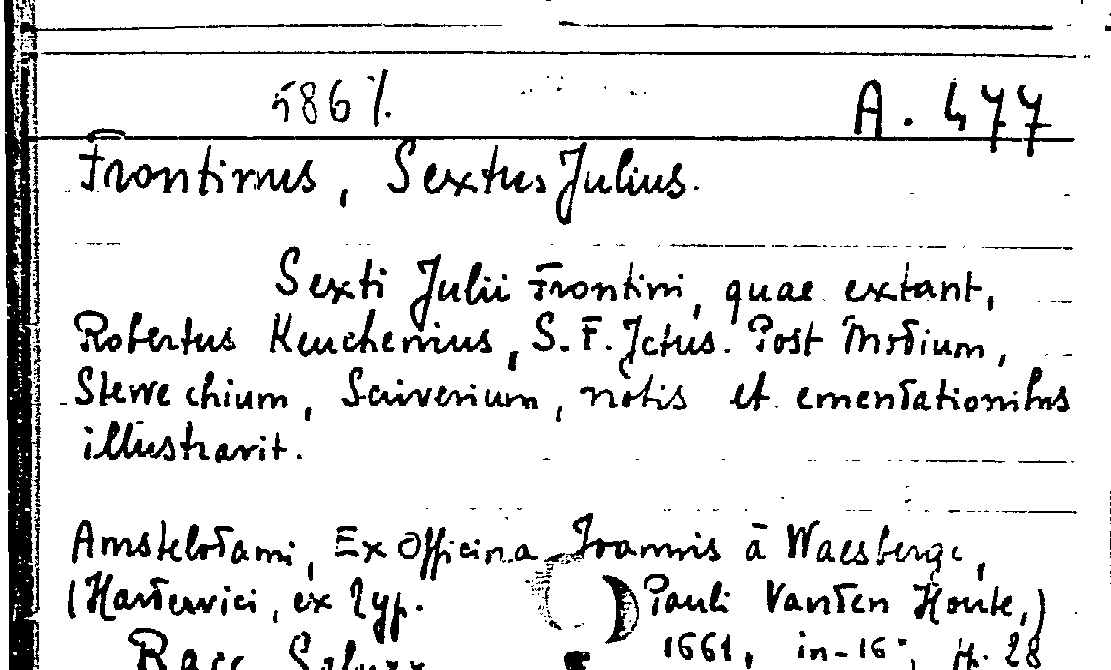 5867. A. 477
Frontinus, Sextus Julius.
Sexti Julii Frontini, quae extant,
Robertus Keuchenius, S. F. Jctus. Post Modium,
Stewechium, Scriverium, notis et emendationibus
illustravit.
Amstelodami, Ex Officina Joannis à Waesberge,
(Hardervici, ex Typ. Pauli Vanden Houte,)
Racc. Saluzz 1661, in-16°, pp. 28